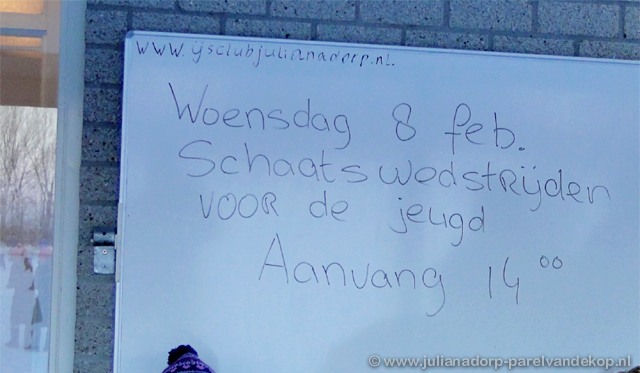 www.ijsclubjulianadorp.nl.
Woensdag 8 feb.
Schaatswedstrijden
VOOR de jeugd
Aanvang 14 00
© www.julianadorp-parelvandekop.nl